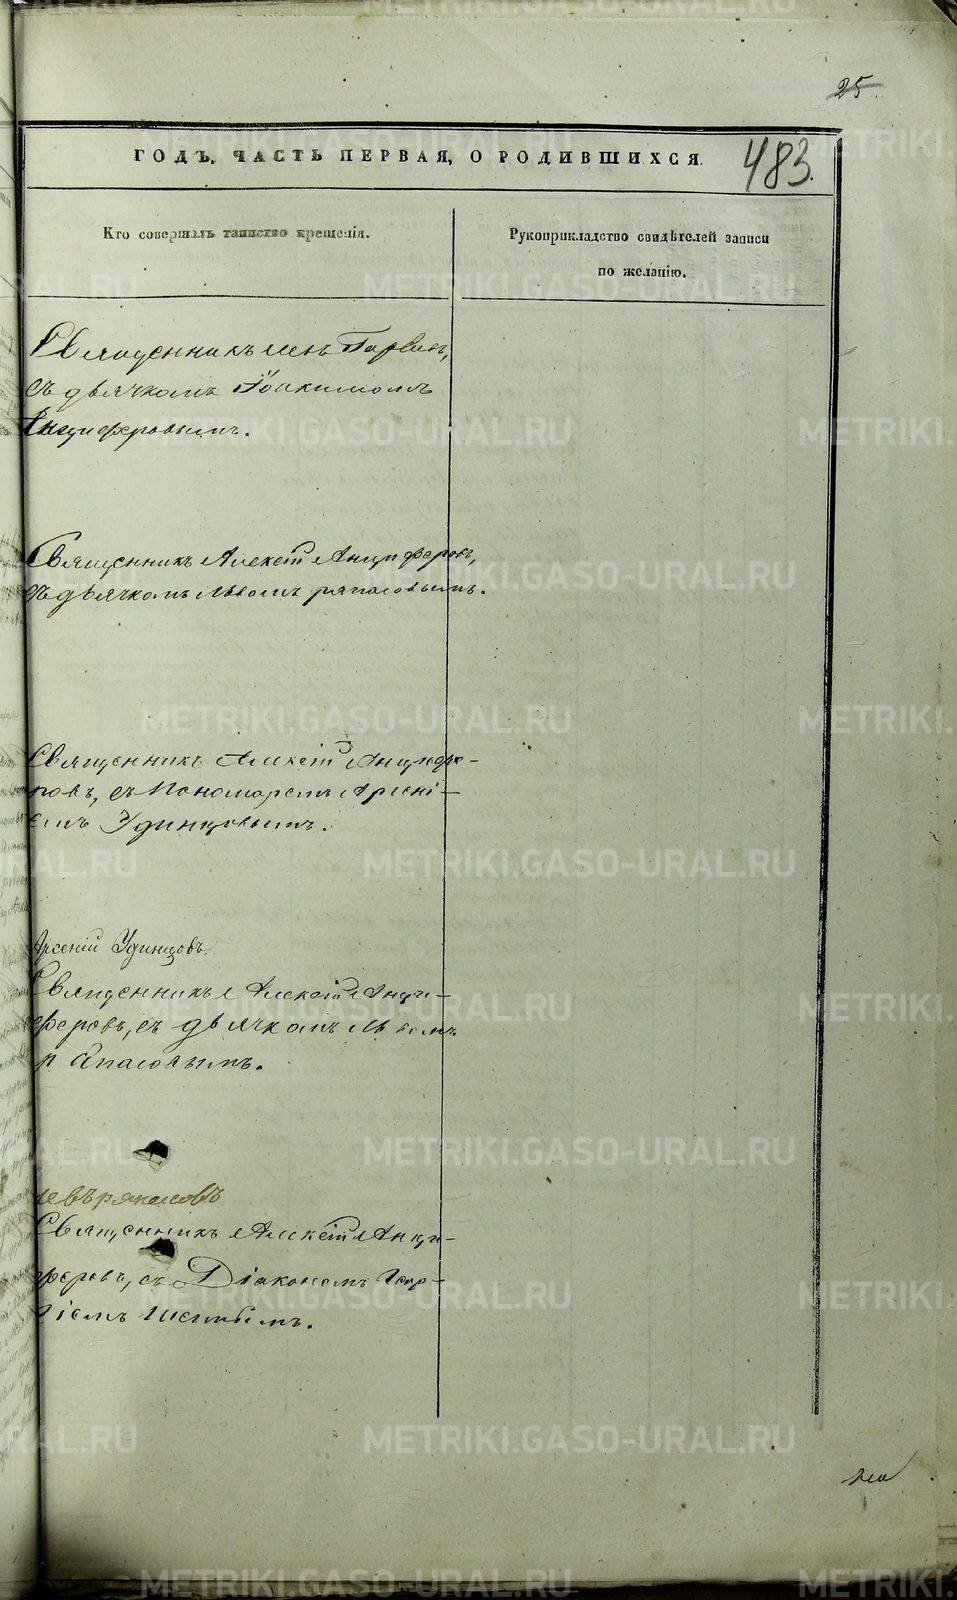 25.
ГОДЪ. ЧАСТЬ ПЕРВАЯ, О РОДИВШИХСЯ.
483.
Кто совершалъ таинство крещенія.
Рукоприкладство свидѣтелей записи
по желанію.
Священникъ
съ дьячкомъ Іоакимомъ
Анциферовымъ.
Священникъ Алексѣй Анциферовъ,
съ дьячкомъ Львомъ Ряпасовымъ.
Священникъ Алексѣй Анцифе-
ровъ, съ Пономаремъ Арсені-
емъ Удинцовымъ.
Арсеній Удинцовъ.
Священникъ Алексѣй Анци-
феровъ, съ дьячкомъ Львомъ
Ряпасовымъ.
Левъ Ряпасовъ
Священникъ Алексѣй Анци-
феровъ, съ Діакономъ Геор-
гіемъ
METRIKI.GASO-URAL.RU